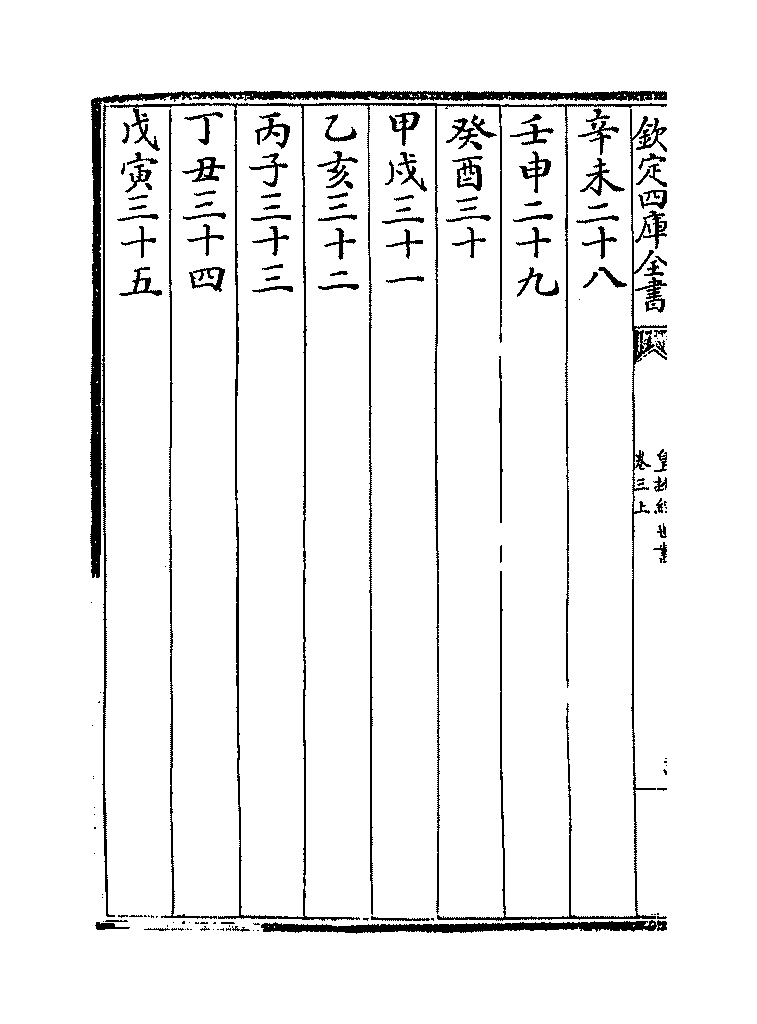 欽定四庫全書
皇極經世書
卷三上
辛未二十八
壬申二十九
癸酉三十
甲戌三十一
乙亥三十二
丙子三十三
丁丑三十四
戊寅三十五